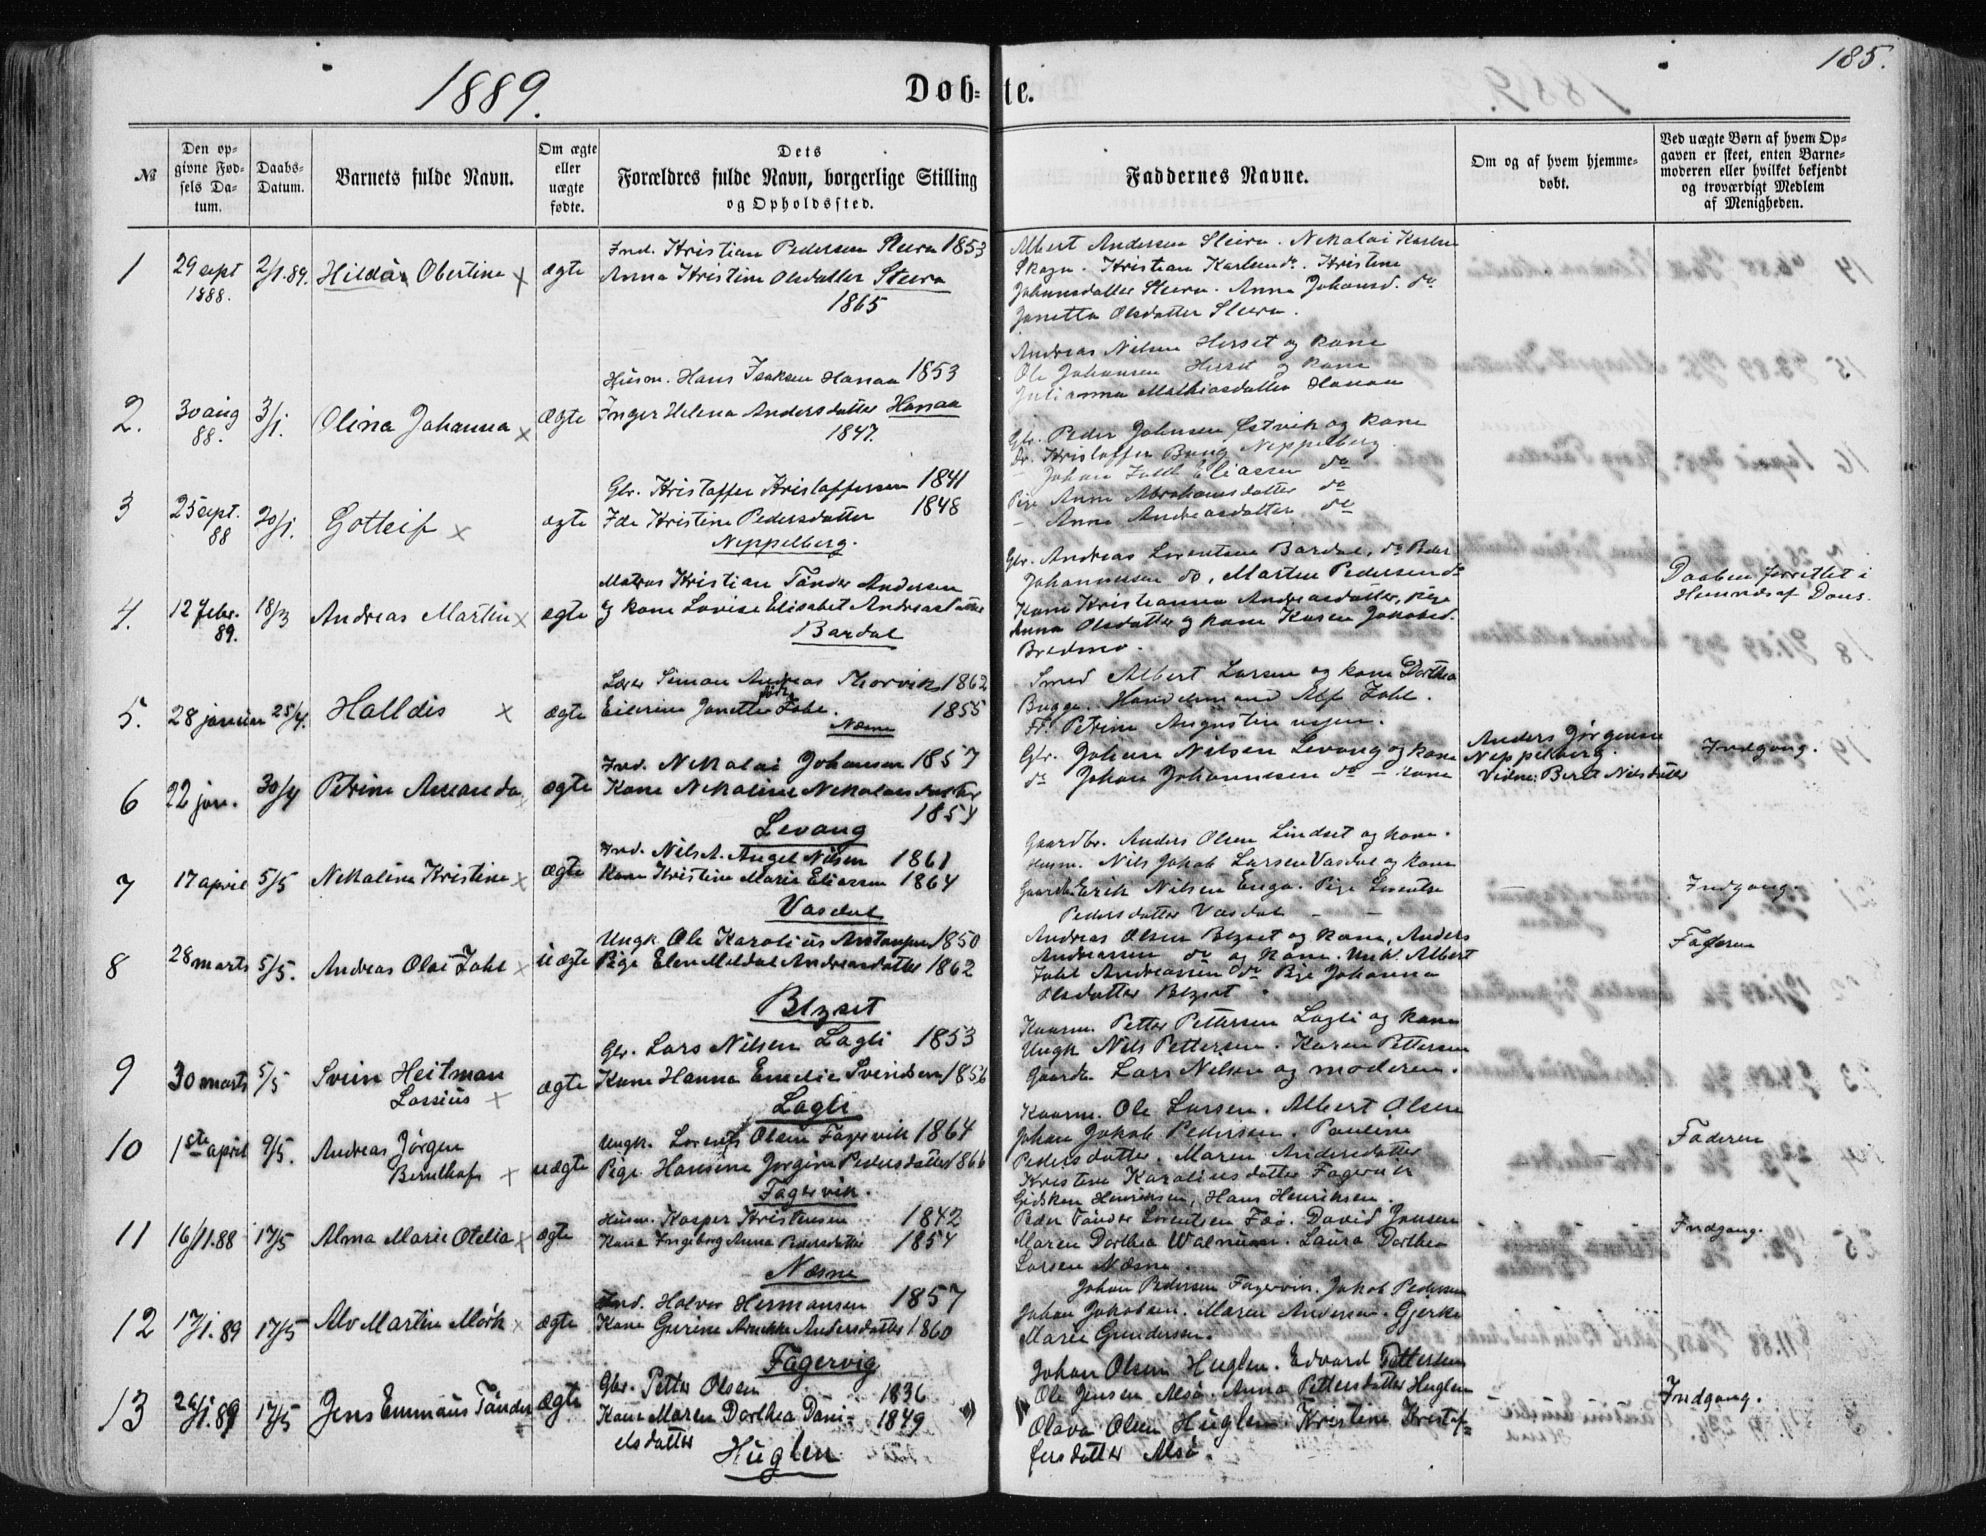 1889.
Døb-te.
185.
№
Den opgivne Fødsels Datum.
Daabs-Datum.
Barnets fulde Navn.
Om ægte eller uægte fødte.
Dets Forældres fulde Navn, borgerlige Stilling og Opholdssted.
Faddernes Navne.
Om og af hvem hjemmedøbt.
Ved uægte Børn af hvem Opgaven er skeet, enten Barnemoderen eller hvilket bekjendt og troværdigt Medlem af Menigheden.
1 29 sept 1888. 2/1.89. Hilda Obertine x ægte
Ind. Kristian Pedersen Steiro 1853
Anna Kristine Olsdatter Steiro
1865
Albert Andersen Steiro. Nekolai Karlsen
Skogn. Kristian Karlsen do. Kristine
Johannsdatter Steiro. Anne Johansd. do.
Janetta Olsdatter Steiro.
2. 30 aug 88. 3/1. Olina Johanna x Ægte
Husm. Hans Isaksen Hanaa 1853
Inger Helena Andersdatter Hanaa
1847.
Andreas Nilsen Hesset og kone
Ole Johansen Hesset og kone
Julianna Mathiasdatter Hanaa
3 25 sept. 88 20/1. Gotleif x ægte
Gbr. Kristoffer Kristoffersen 1841
Ida Kristine Pedersdatter 1848
Neppelberg.
Gbr. Peder Johnsen Østvik og kone
Dr. Kristoffer Bang Neppelberg
- Johan Zahl Eliassen do
Pige Anne Abrahamsdatter do
- Anne Andreasdatter do
4. 12 febr. 89. 18/3 Andreas Martin x ægte
Matros Kristian Tønder Andersen
og kone Lovise Elisabet Andreasdatter
Bardal
Gbr. Andreas Lorentsen Bardal, do Peder
Johannesen do, Martin Pedersen do
Kone Kristianna Andreasdatter, Pige
Anna Olsdatter og kone Karen Jakobsd.
Bredmo.
Daaben forrettet i
Hemnes af Dons.
5. 28 januar 25/4. Halldis x ægte
Lærer Simon Andreas Thorvik 1862
Eilerine Janette født Zahl. 1855
Næsne
Smed Albert Larsen og kone Dorthea
Bugge. Handelsmand Alf Zahl.
Fr. Petrine Augustinussen.
6 22 jan. 30/4 Petrine Amanda x ægte
Ind. Nekolai Johansen 1857
Kone Nekoline Nekolaisdatter
1854
Levang
Gbr. Johan Nilsen Levang og kone
do Johan Johannesen do - kone
Anders Jørgensen
Neppelberg.
Vidne: Beret Nilsdatter
Indgang.
7 17 april 5/5 Nekoline Kristine x ægte
Ind. Nils A. Angel Nilsen 1861
Kone Kristine Marie Eliassen 1864
Vasdal
Gaardbr. Anders Olsen Lindset og kone.
Husm. Nils Jakob Larsen Vasdal og kone
Gaardbr. Erik Nilsen Enga. Pige Lorentse
Pedersdatter Vasdal - -
Indgang.
8 28 marts 5/5. Andreas Olai Zahl x uægte
Ungk. Ole Karolius Antonsen 1850
Pige Elen Meldal Andreasdatter 1862
Blyset
Andreas Olsen Blyset og kone, Anders
Andreassen do og kone. Unk. Albert
Zahl Andreassen do Pige Johanna
Olsdatter Blyset.
Faderen
9 30 marts 5/5 Svein Heitman
Lassius x ægte
Gbr. Lars Nilsen Lagli 1853
Kone Hanna Emelie Svendsen 1856
Lagli
Kaarm. Petter Pettersen Lagli og kone
Ungk Nils Pettersen. Karen Pettersen
Gaardbr. Lars Nilsen og moderen.
10 1ste april 9/5. Andreas Jørgen
Bernthof x uægte
Ungk. Lorents Olsen Fagervik 1864
Pige Hansine Jørgine Pedersdatter 1866
Fagervik.
Kaarm. Ole Larsen. Albert Olsen
Johan Jakob Pedersen. Pauline
Pedersdatter. Maren Andersdatter
Kristine Karoliusdatter Fagervik
Faderen
11 16/11.88 17/5 Alma Marie Otelia x ægte
Husm. Kasper Kristensen 1842
Kone Ingeborg Anna Pedersdatter 1854
Næsne
Gidsken Henriksen, Hans Henriksen.
Peder Tønder Lorentsen Fæø. David Jensen
Maren Dorthea Walnum. Laura Dorthea
Larsen Næsne.
Indgang.
12 17/1.89 17/5 Alv Martin Mørk x ægte
Ind. Halvor Hermansen 1857
Kone Gurine Andersdatter 1860
Fagervig
Johan Pedersen Fagervik. Jakob Pedersen
Johan Jakobsen. Maren Andersen. Gjerke
Marie Gundersen.
13 26/1.89 17/5 Jens Emmaus Tønder ægte
Gbr. Petter Olsen 1836
Kone Maren Dorthea Dani- 1849
elsdatter
Huglen
Johan Olsen Huglen. Edvard Pettersen
Ole Jensen Alsø. Anna Pettersdatter Huglen
Olava Olsen Huglen. Kristine Kristof-
fersdatter Alsø.
Indgang.